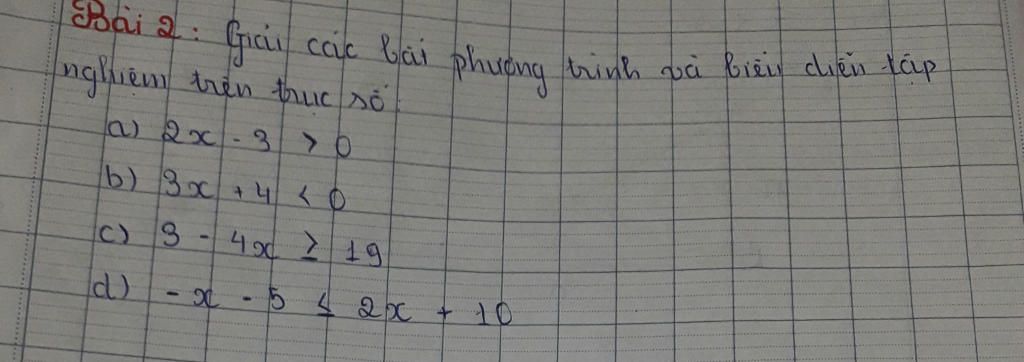 Bài 2: Giải các bài phương trình và biểu diễn tập
nghiệm trên trục số
a) 2x - 3 > 0
b) 3x + 4 < 0
c) 3 - 4x ≥ 19
d) -x - 5 ≤ 2x + 10